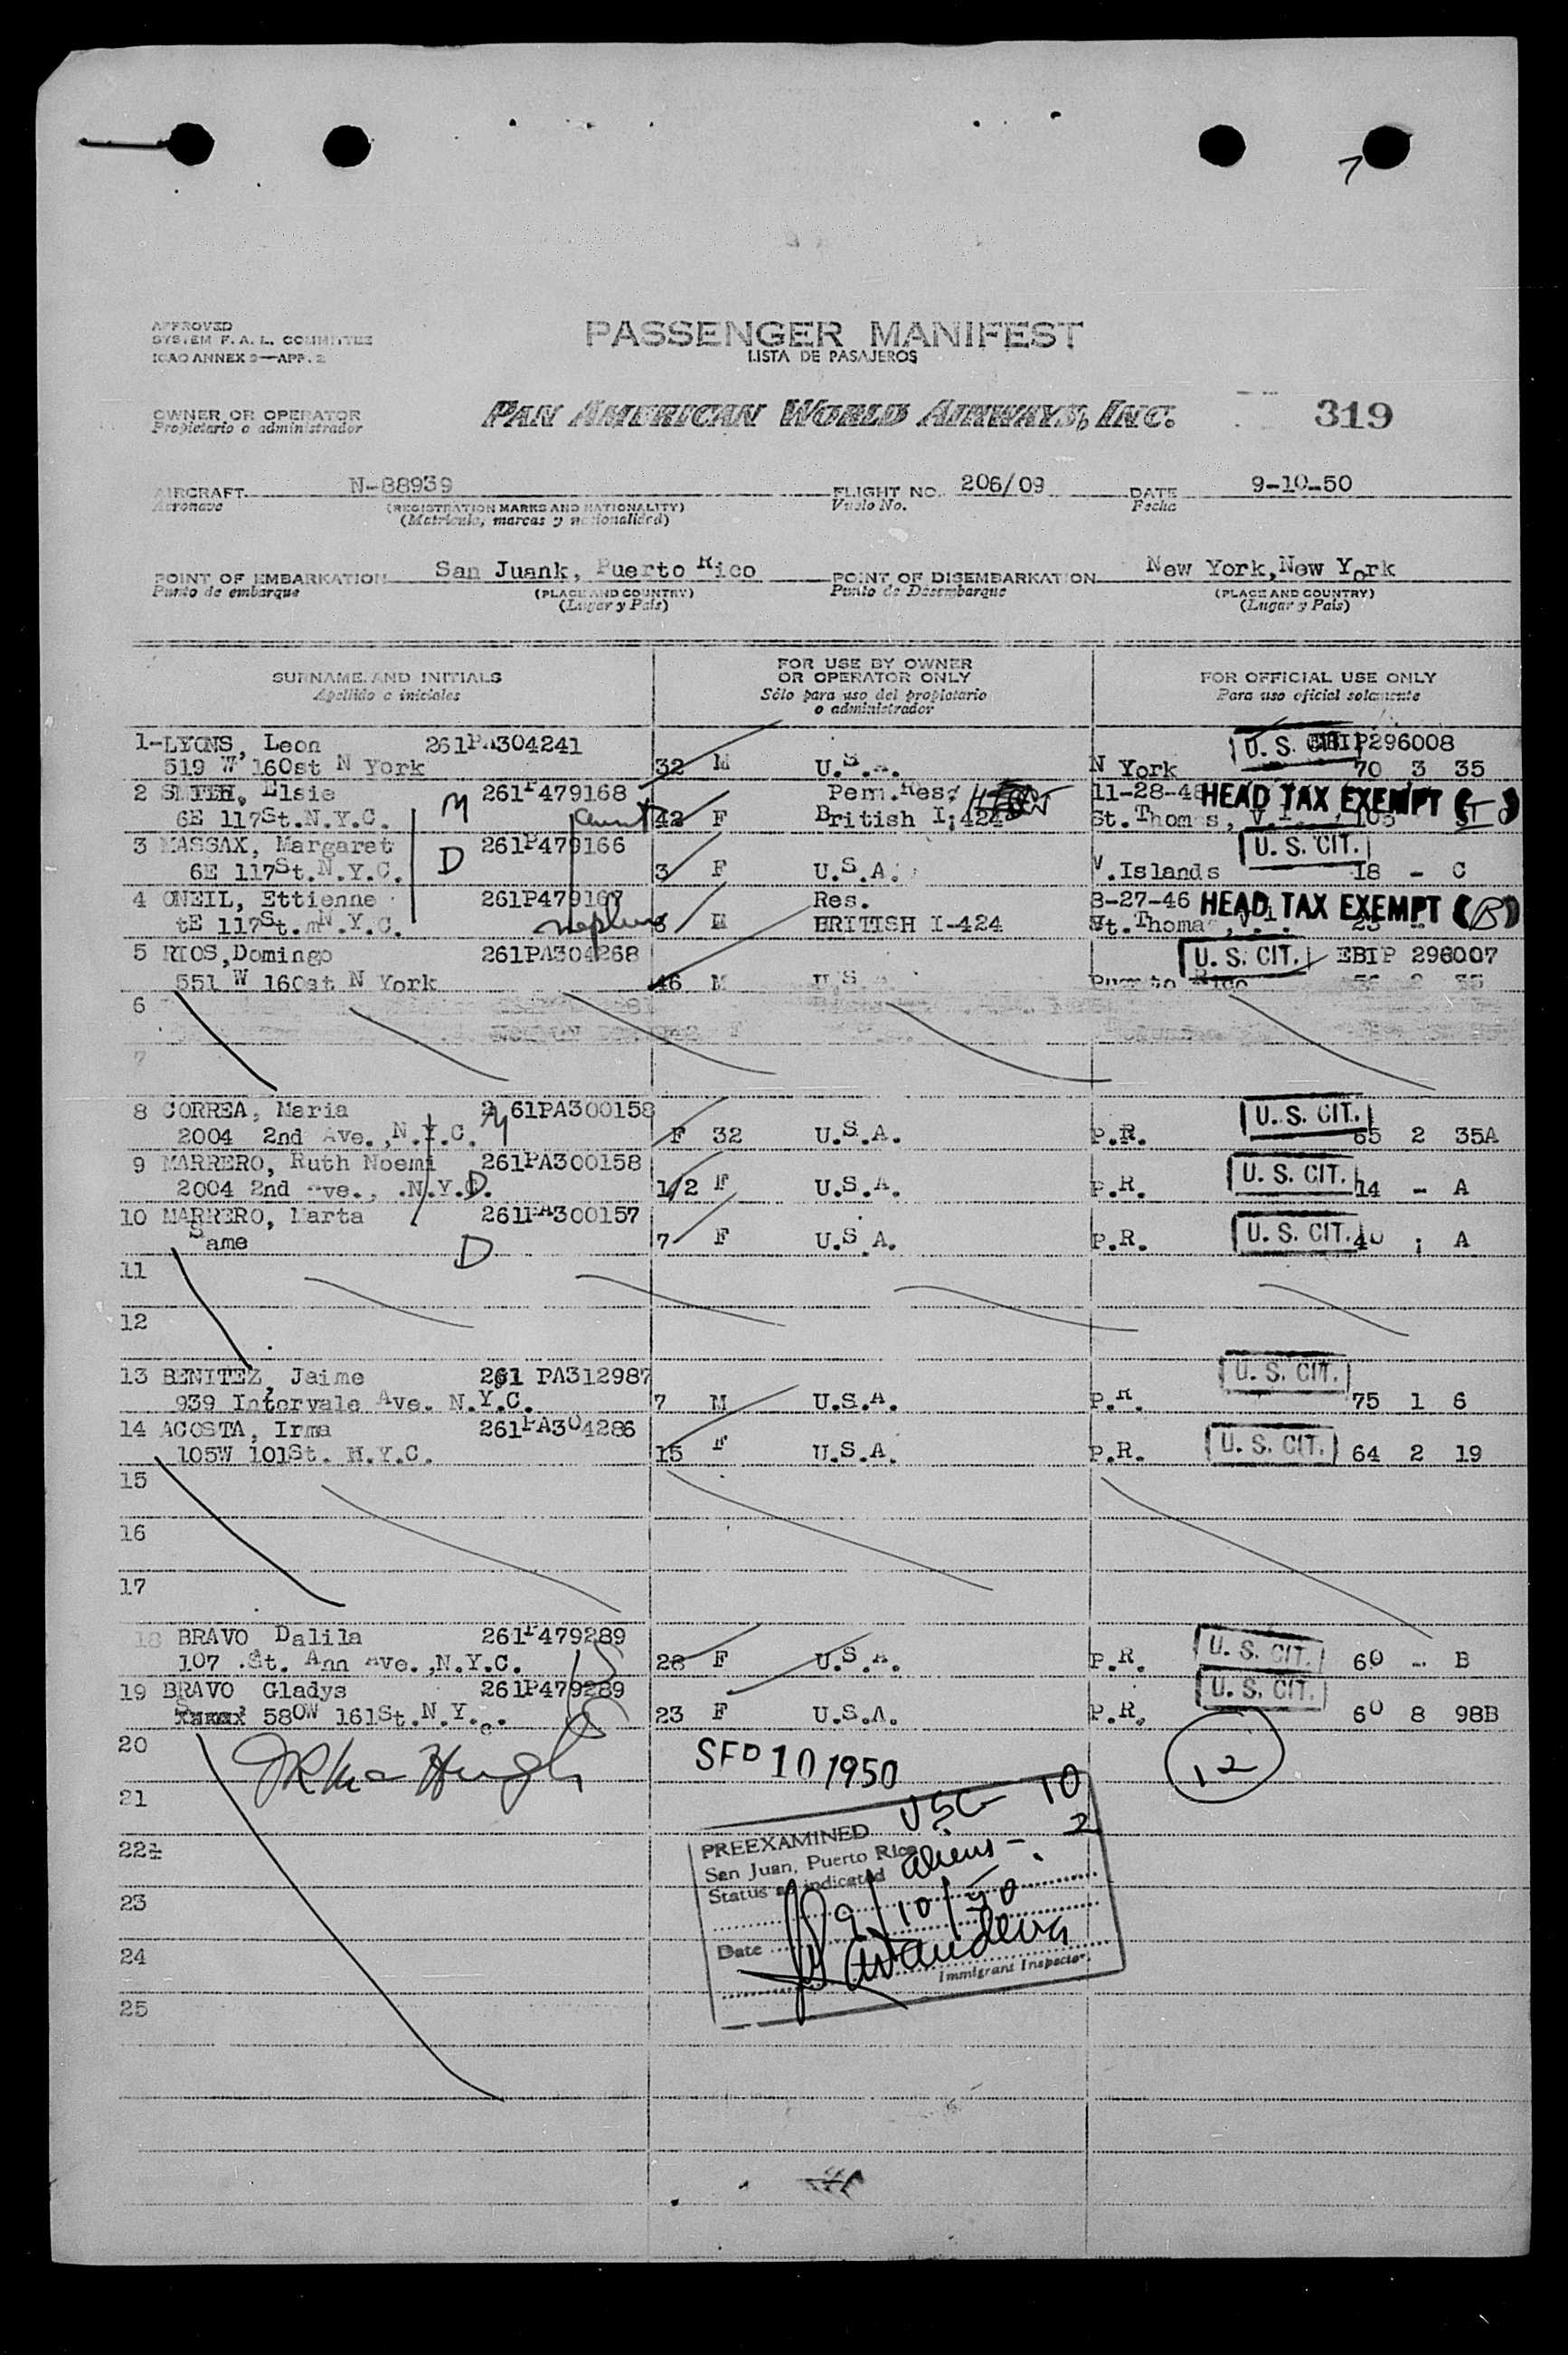 7
APPROVED
SYSTEM F. A. L. COMMITTEE
ICAO ANNEX 9—APP. 2
PASSENGER MANIFEST
LISTA DE PASAJEROS
OWNER OR OPERATOR
Propietario o administrador
PAN AMERICAN WORLD AIRWAYS, INC.
319
AIRCRAFT N-88939 FLIGHT NO. 206/09 DATE 9-10-50
Aeronave (REGISTRATION MARKS AND NATIONALITY) Vuelo No. Fecha
(Matricula, marcas y nacionalidad)
POINT OF EMBARKATION San Juank, Puerto Rico POINT OF DISEMBARKATION New York,New York
Punto de embarque (PLACE AND COUNTRY) Punto de Desembarque (PLACE AND COUNTRY)
(Lugar y País) (Lugar y País)
SURNAME AND INITIALS FOR USE BY OWNER OR OPERATOR ONLY FOR OFFICIAL USE ONLY
Apellido e iniciales Sólo para uso del propietario o administrador Para uso oficial solamente
1-LYONS, Leon 261PA304241 U. S. CIT. EBIP296008
519 W 160st N York 32 M U.S.A. N York 70 3 35
2 SMITH, Elsie M 261P479168 Pem.Res. 11-28-48 HEAD TAX EXEMPT
6E 117St.N.Y.C. aunt 42 F British I;424 St.Thomas, V.I. 105
3 MASSAX, Margaret D 261P479166 U. S. CIT.
6E 117St.N.Y.C. 3 F U.S.A. V.Islands 18 - C
4 ONEIL, Ettienne 261P479167 Res. 8-27-46 HEAD TAX EXEMPT (B)
tE 117St.mN.Y.C. nephew 6 M BRITISH I-424 St.Thomas, V.I.
5 RIOS,Domingo 261PA304268 U. S. CIT. EBIP 296007
551 W 160st N York 46 M U.S.A. Puerto Rico 56 2 35
6
7
8 CORREA, Maria M 261PA300158 U. S. CIT.
2004 2nd Ave.,N.Y.C. F 32 U.S.A. P.R. 65 2 35A
9 MARRERO, Ruth Noemi 261PA300158 U. S. CIT.
2004 2nd Ave., .N.Y.C. D 1/2 F U.S.A. P.R. 14 - A
10 MARRERO, Marta 261PA300157 U. S. CIT.
Same D 7 F U.S.A. P.R. 40 ; A
11
12
13 BENITEZ, Jaime 261 PA312987 U. S. CIT.
939 Intervale Ave. N.Y.C. 7 M U.S.A. P.R. 75 1 6
14 ACOSTA, Irma 261PA304286 U. S. CIT.
105W 101St. N.Y.C. 15 F U.S.A. P.R. 64 2 19
15
16
17
18 BRAVO Dalila 261P479289 U. S. CIT.
107 .St. Ann Ave.,N.Y.C. 28 F U.S.A. P.R. 60 - B
19 BRAVO Gladys 261P479289 U. S. CIT.
580W 161St.N.Y.c. 23 F U.S.A. P.R. 60 8 98B
20
SEP 10 1950
12
21
22
23
24
25
USC- 10
aliens - 2
PREEXAMINED
San Juan, Puerto Rico
Status as indicated
9/10/50
Date
Immigrant Inspector